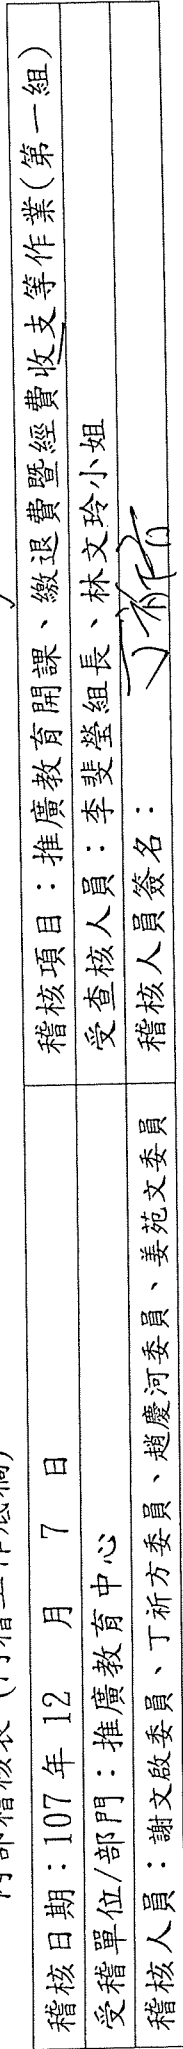 內部稽核表(內稽工作底稿)
稽核日期：107年12 月 7 日
稽核項目：推廣教育開課、繳退費暨經費收支等作業(第一組)
受稽單位/部門：推廣教育中心
受查核人員：李斐瑩組長、林文玲小姐
稽核人員：謝文啟委員、丁祈方委員、趙慶河委員、姜苑文委員
稽核人員簽名：